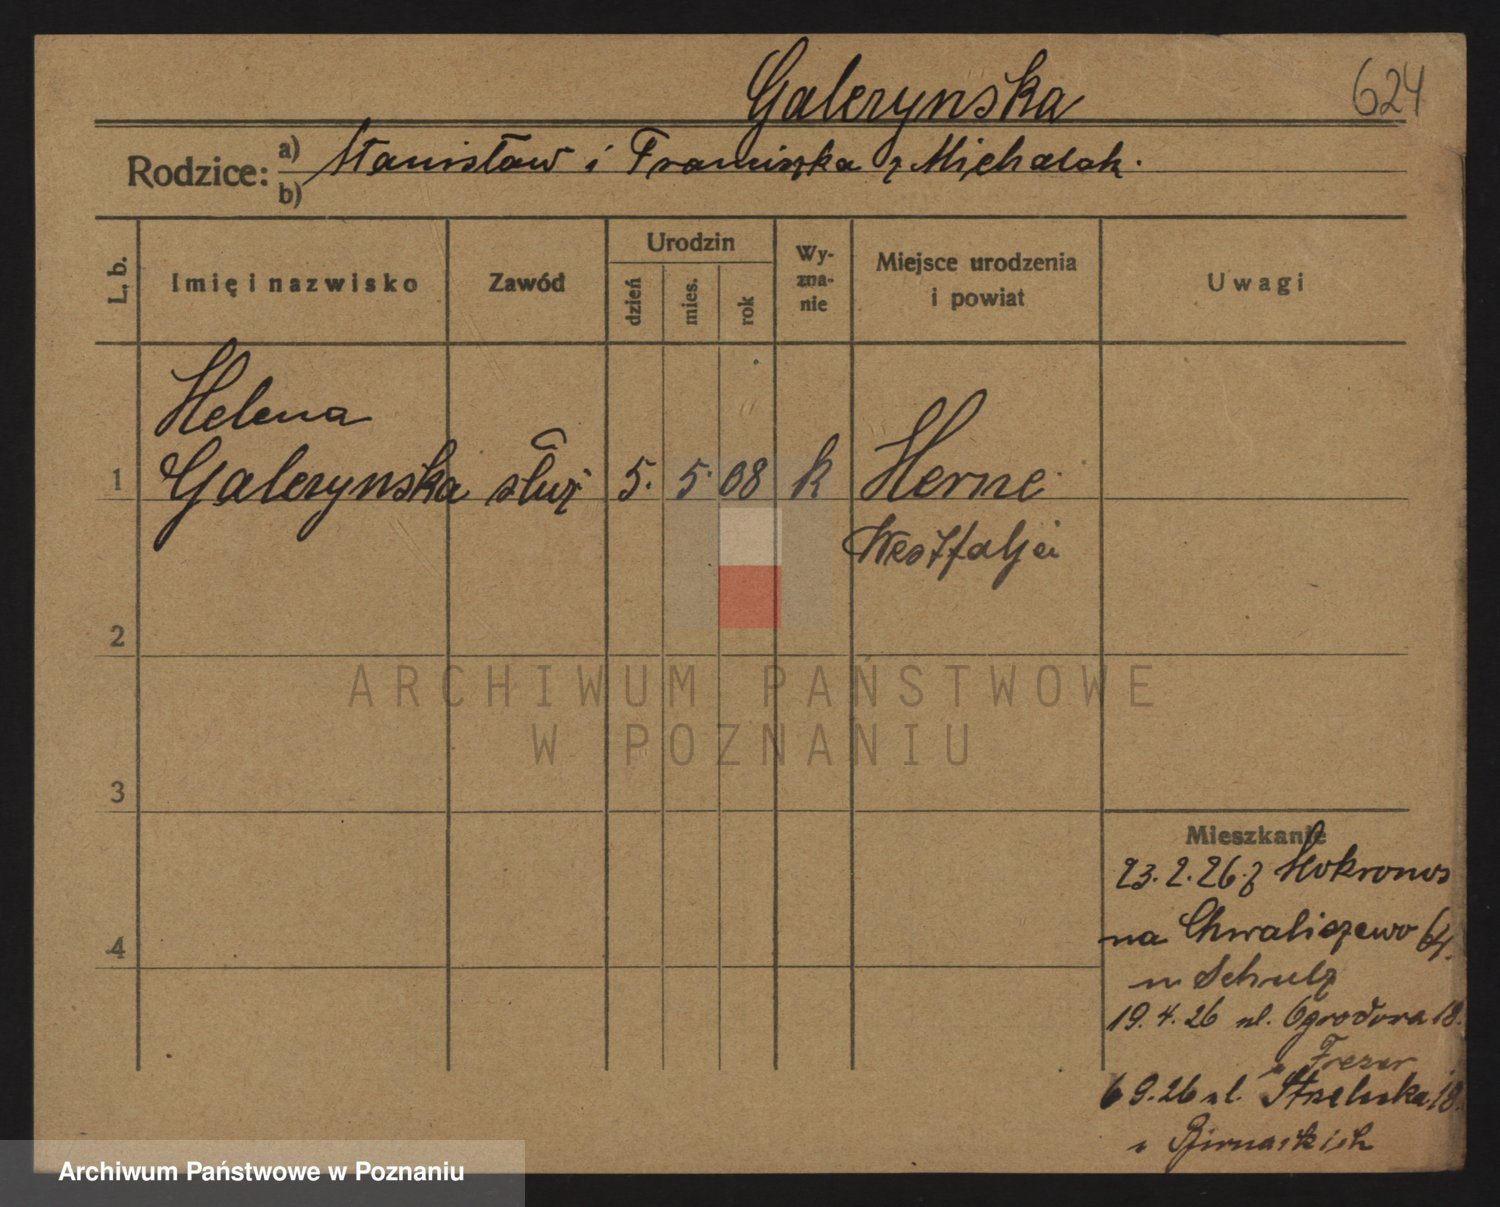 Galerynska
624
Rodzice:
a) Stanisław i Franciszka z Michalak.
b)
L. b.
Imię i nazwisko
Zawód
Urodzin
dzień
mies.
rok
Wy-
zna-
nie
Miejsce urodzenia
i powiat
Uwagi
Helena
1 Galerynska służ 5. 5. 08 k Herne
Westfalja
2
3
4
Mieszkanie
23.2.26 z Mokronos
na Chwaliszewo 64.
u Schulz
19.4.26 ul. Ogrodowa 18.
u Frezer
6 9.26 ul. Strzelecka 18.
u
ARCHIWUM PAŃSTWOWE
W POZNANIU
Archiwum Państwowe w Poznaniu